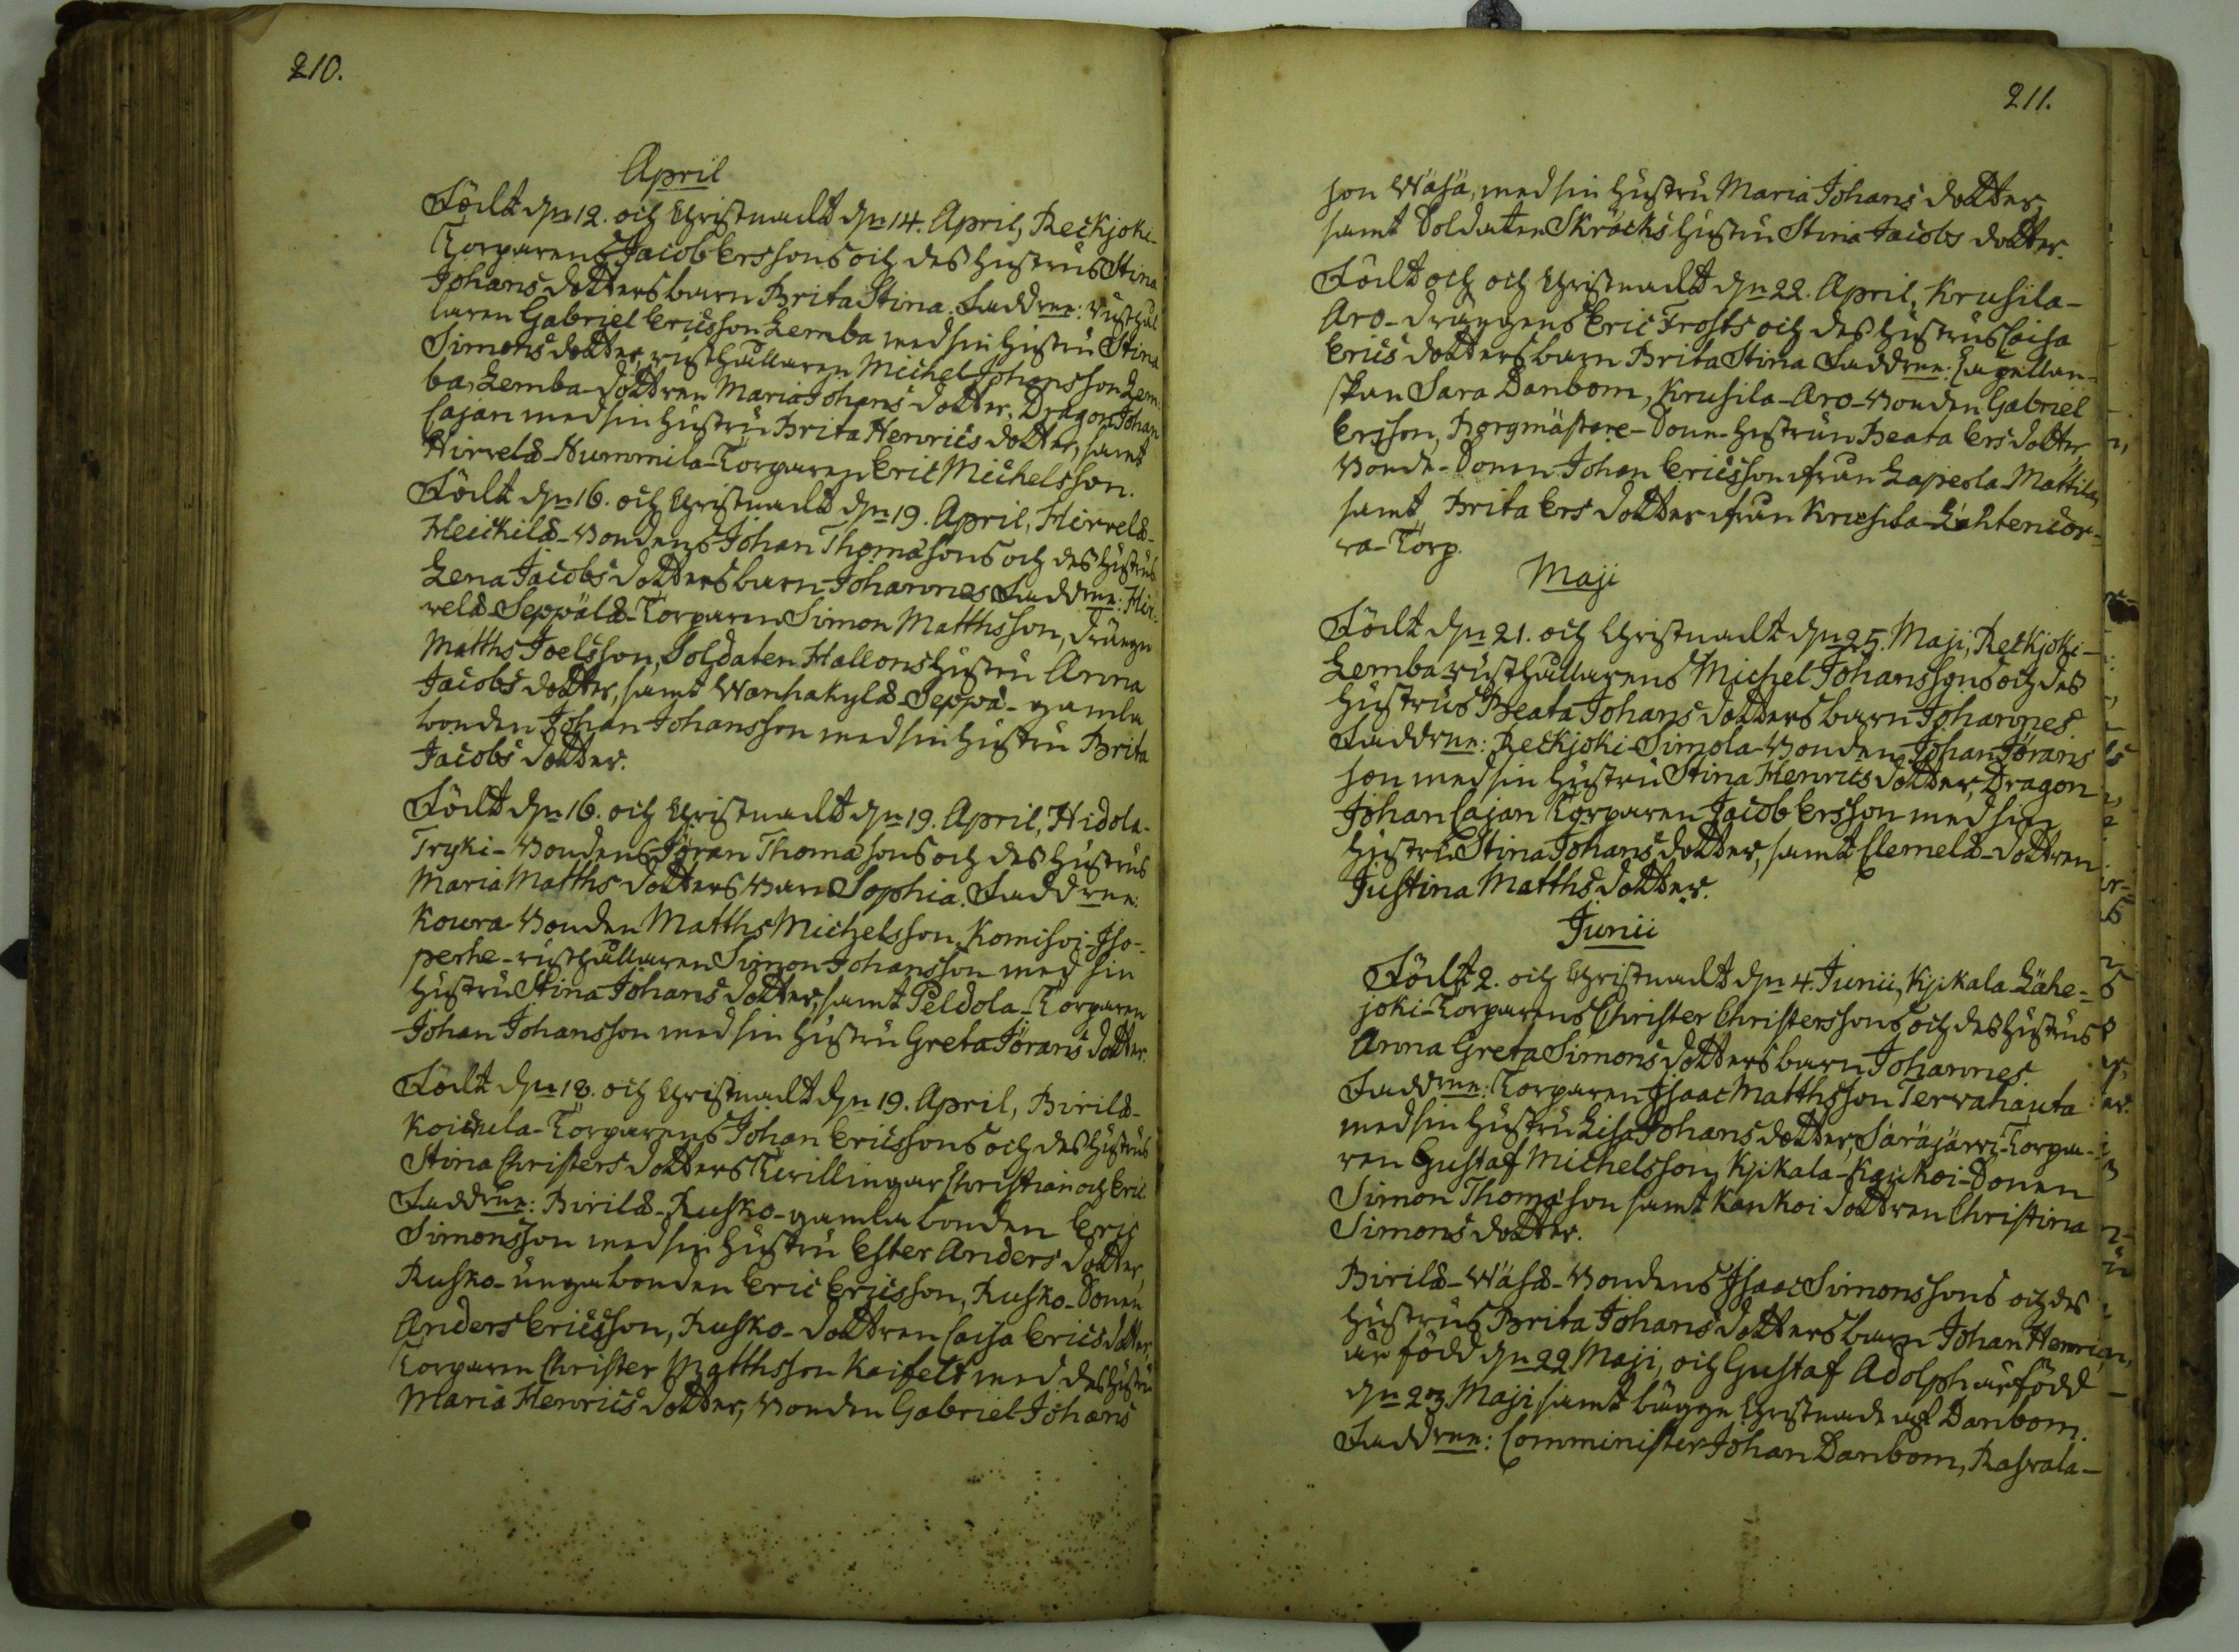 210.
April
Född dn 12. och Christnadt dn 14. April, Reckjoki-
Torparens Jacob Erssons och des Hustrus Stina
Johans dotters barn Brita Stina. Faddrne: Rusthål
laren Gabriel Ericsson Lemba med sin Hustru Stina
Simons dotter, rusthållaren Michel Johansson Lem-
ba, Lemba-dottren Maria Johans dotter, Dragon Johan
Cajan med sin Hustru Brita Henrics dotter, samt
Hirvelä-Nummila-Torparen Eric Michelsson.
Född dn 16. och Christnadt dn 19. April, Hirvelä-
Heickilä-Bondens Johan Thomæsons och des Hustrus
Lena Jacobs dotters barn Johannes Faddrne: Hir-
velä-Seppälä-Torparen Simon Matthsson, drängen
Matths Joelsson, Soldaten Hallons Hustru Anna
Jacobs dotter, samt Wanhakylä-Seppä-gamla
bonden Johan Johansson med sin Hustru Brita
Jacobs dotter.
Född dn 16. och Christnadt dn 19. April, Hidola-
Tryki-Bondens Jöran Thomæsons och des Hustrus
Maria Matths dotters Barn Sophia. Faddrne:
Koura-Bonden Matths Michelsson, Komisoi-Iso-
perhe-rusthållaren Simon Johansson med sin
Hustru Stina Johans dotter, samt Peldola-Torparen
Johan Johansson med sin Hustru Greta Jörans dotter.
Född dn 18. och Christnadt dn 19. April, Birilä-
Koivula-Torparens Johan Ericssons och des Hustrus
Stina Christers dotters Tvillingar Christian och Eric.
Faddrne: Birilä-Rusko-gamla bonden Eric
Simonsson med sin Hustru Ester Anders dotter,
Rusko-unga bonden Eric Ericsson, Rusko-Sonen
Anders Ericsson, Rusko-dottren Caisa Erics dotter,
Torparen Christer Matthsson Kaifelt med des Hustru
Maria Henrics dotter, Bonden Gabriel Johans
211.
son Wäsä, med sin Hustru Maria Johans dotter,
samt Soldaten Skräcks Hustru Stina Jacobs dotter.
Född och och Christnadt dn 22. April, Krusila-
Aro-drängens Eric Frosts och des Hustrus Caisa
Erics dotters barn Brita Stina Faddrne: Capellan-
skan Sara Danbom, Krusila-Aro-Bonden Gabriel
Ersson, Borgmästare-Sone-Hustrun Beata Ers dotter,
Bonde-Sonen Johan Ericsson ifrån Lapiola-Mattila,
samt Brita Ers dotter ifrån Krusila-Lähtencor-
va-Torp.
Maji
Född dn 21. och Christnadt dn 25. Maji, Reckjoki-
Lemba rusthållarens Michel Johanssons och des
Hustrus Beata Johans dotters barn Johannes
Faddrne: Reckjoki-Simola-Bonden Johan Jörans
son med sin Hustru Stina Henrics dotter, Dragon
Johan Cajan Torparen Jacob Ersson med sin
Hustru Stina Johans dotter, samt Clemelä-dottren
Justina Matths dotter.
Junii
Född 2. och Christnadt dn 4. Junii, Kjikala Lähe-
joki-Torparens Christer Christerssons och des Hustrus
Anna Greta Simons dotters barn Johannes.
Faddrne: Torparen Isaac Matthsson Tervahauta
med sin Hustru Lisa Johans dotter, Säräjärvi-Torpa-
ren Gustaf Michelsson, Kjikala-Kaukoi-Sonen
Simon Thomæson samt Kaukoi dottren Christina
Simons dotter.
Birilä-Wäsä-Bondens Isaac Simonssons och des
Hustrus Brita Johans dotters barn Johan Henric
är född dn 22 Maji, och Gustaf Adolph är född
dn 23. Maji samt bägge Christnade af Danbom.
Faddrne: Comminister Johan Danbom, Rasvala-